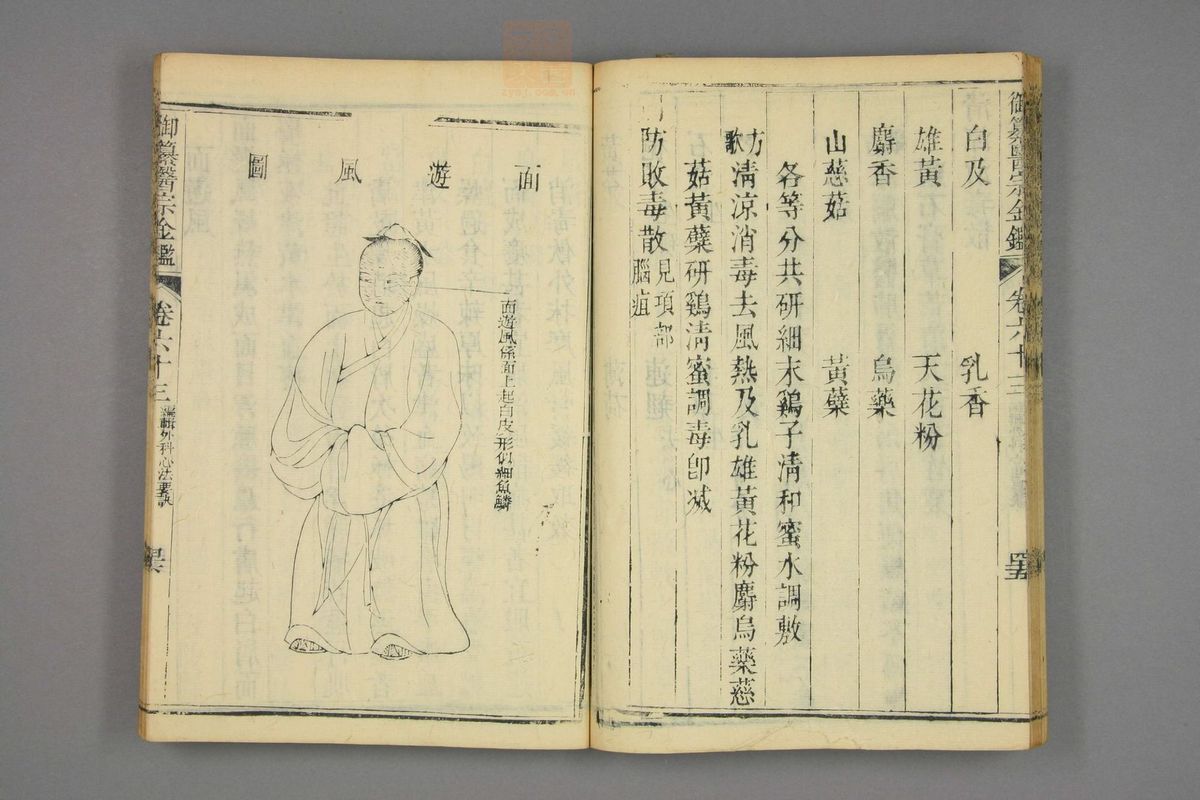 御纂醫宗金鑑 卷六十三
白及 乳香
雄黃 天花粉
麝香 烏藥
山慈菇 黃蘗
各等分共研細末鷄子清和蜜水調敷
方歌 清涼消毒去風熱及乳雄黃花粉麝烏藥慈
菇黃蘗研鷄清蜜調毒卽滅
防敗毒散 見項部腦疽
面遊風圖
面遊風係面上起白皮形似細魚鱗
御纂醫宗金鑑 卷六十三 編輯外科心法要訣